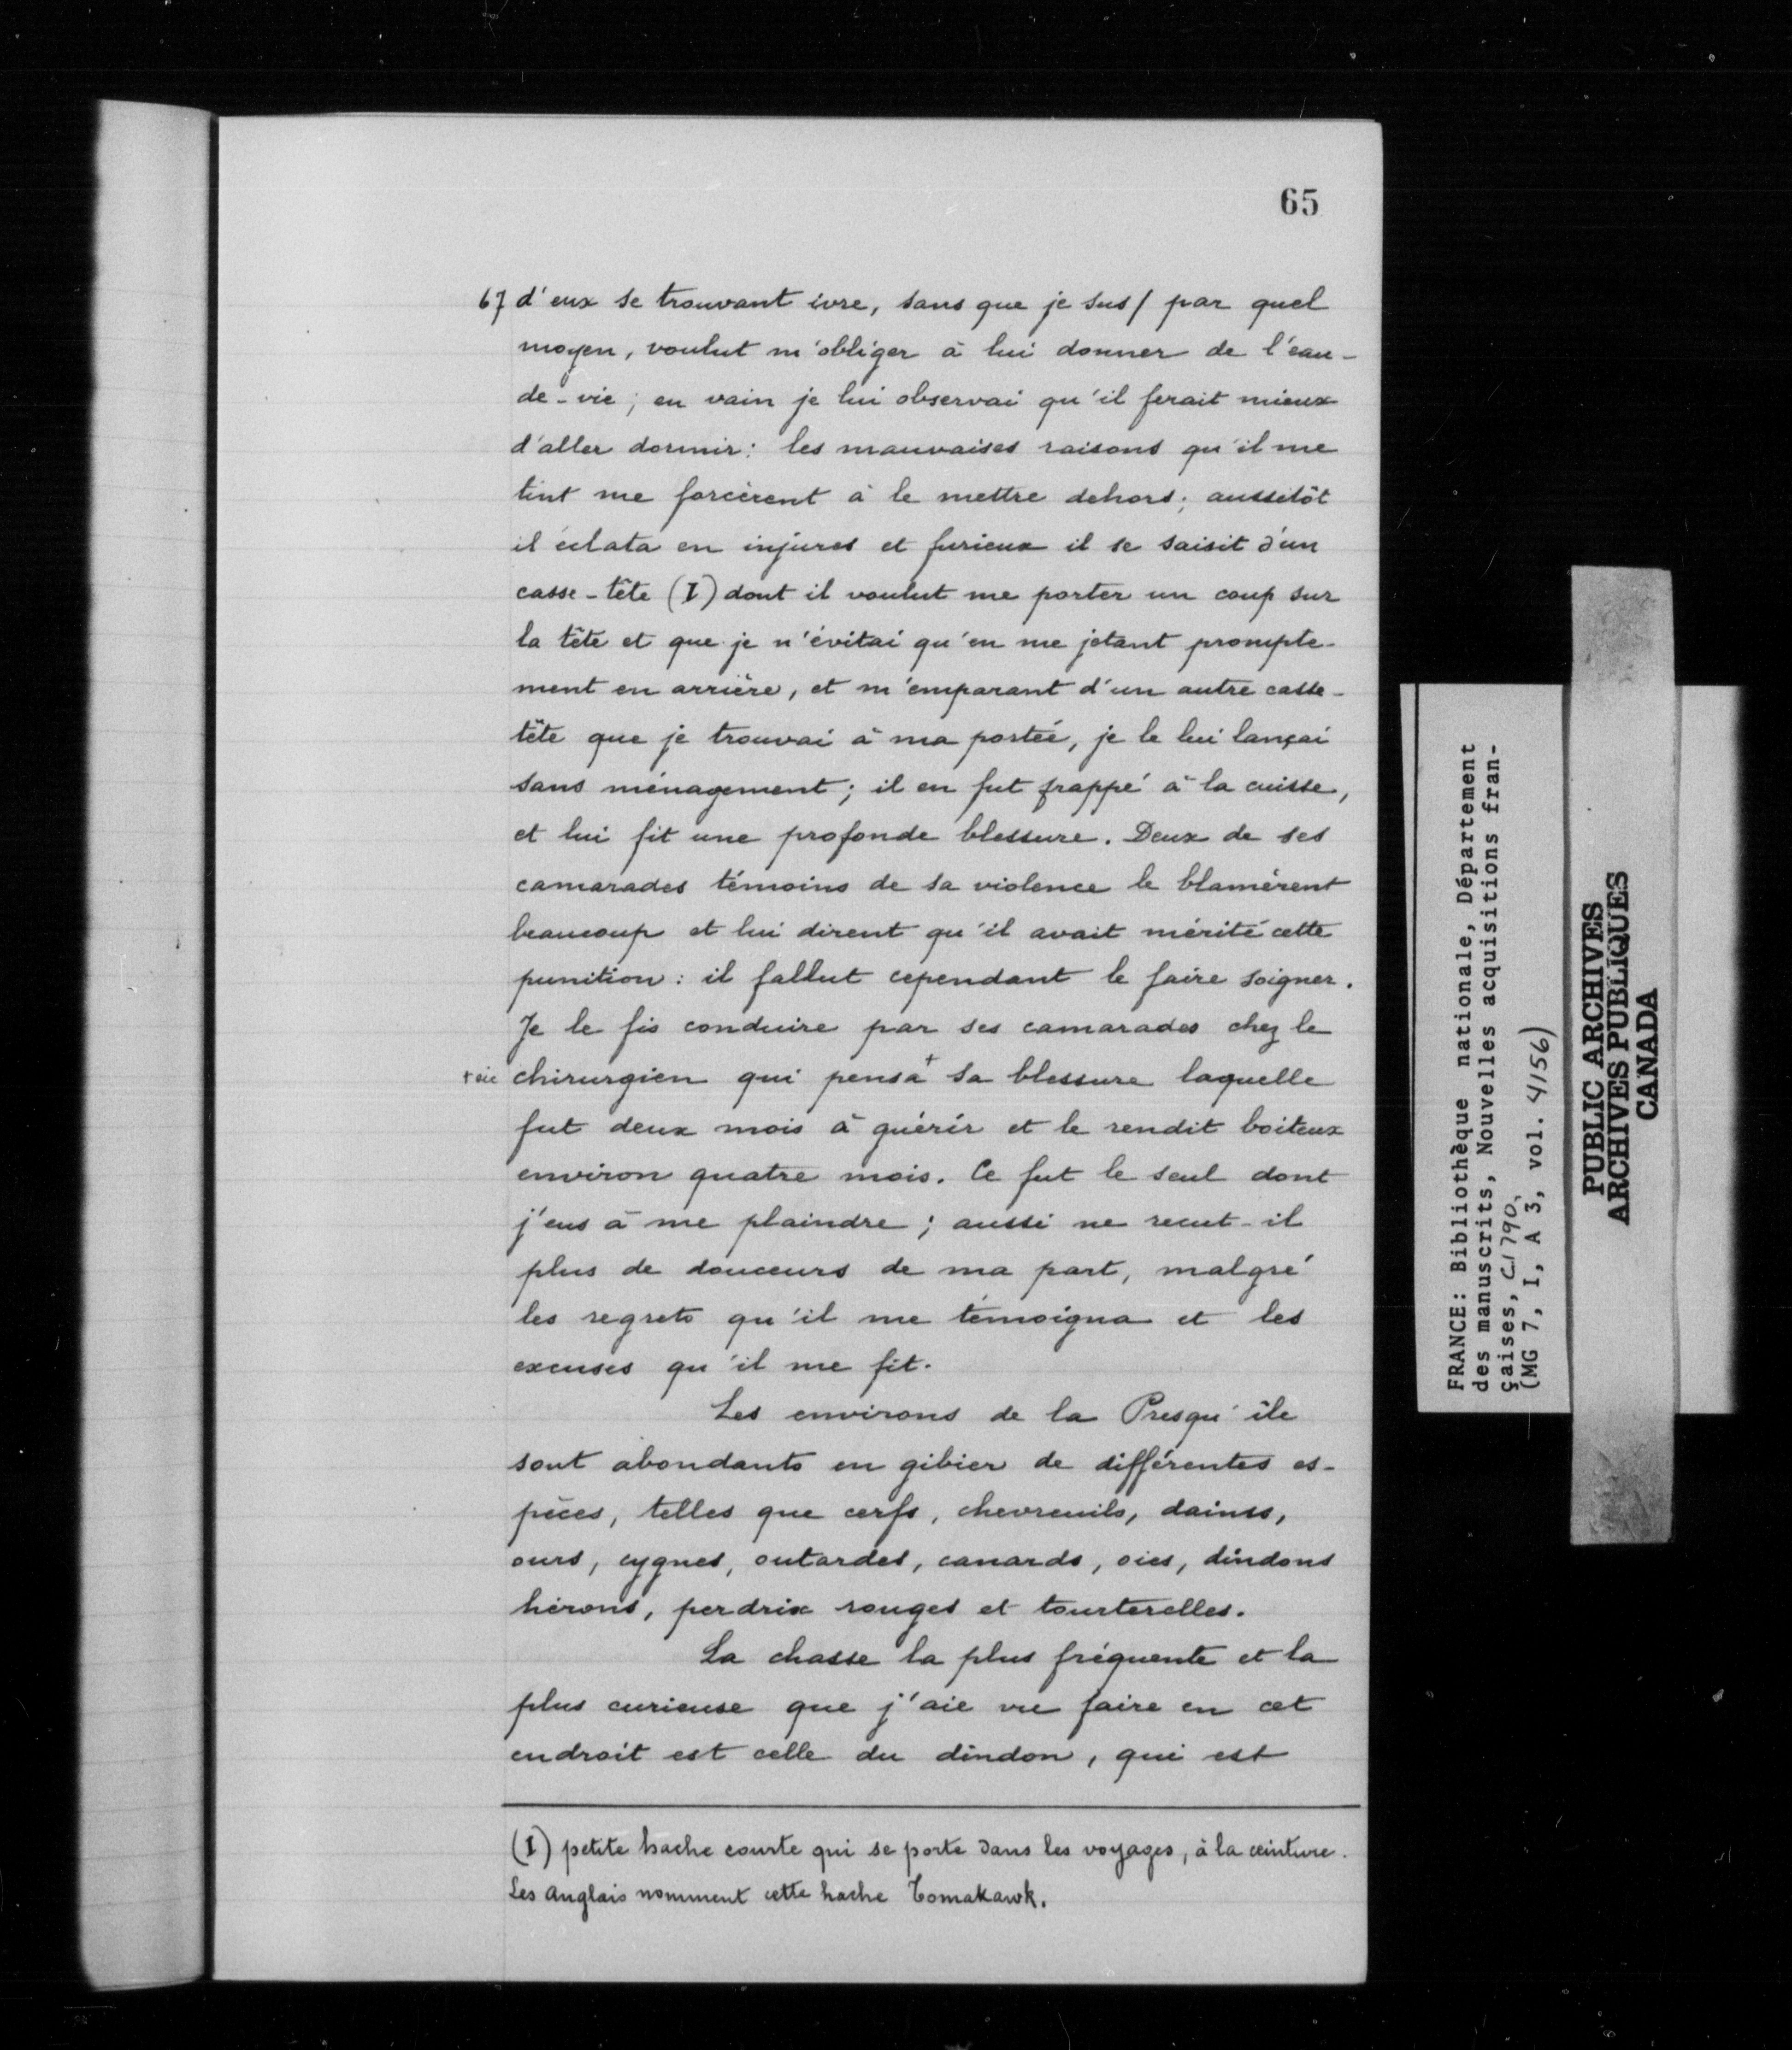 65
67 d'eux se trouvant ivre, sans que je sus/ par quel
moyen, voulut m'obliger à lui donner de l'eau-
de-vie; en vain je lui observai qu'il ferait mieux
d'aller dormir: les mauvaises raisons qu'il me
tint me forcèrent à le mettre dehors; aussitôt
il éclata en injures et furieux il se saisit d'un
casse-tête (I) dont il voulut me porter un coup sur
la tête et que je n'évitai qu'en me jetant prompte-
ment en arrière, et m'emparant d'un autre casse-
tête que je trouvai à ma portée, je le lui lançai
sans ménagement; il en fut frappé à la cuisse,
et lui fit une profonde blessure. Deux de ses
camarades témoins de sa violence le blamèrent
beaucoup et lui dirent qu'il avait mérité cette
punition: il fallut cependant le faire soigner.
Je le fis conduire par ses camarades chez le
+ sic chirurgien qui pensa + sa blessure laquelle
fut deux mois à guérir et le rendit boiteux
environ quatre mois. Ce fut le seul dont
j'eus à me plaindre; aussi ne recut-il
plus de douceurs de ma part, malgré
les regrets qu'il me témoigna et les
excuses qu'il me fit.
Les environs de la Presqu'île
sont abondants en gibier de différentes es-
pèces, telles que cerfs, chevreuils, daims,
ours, cygnes, outardes, canards, oies, dindons
hérons, perdrix rouges et tourterelles.
La chasse la plus fréquente et la
plus curieuse que j'aie vu faire en cet
endroit est celle du dindon, qui est
(I) petite hache courte qui se porte dans les voyages, à la ceinture.
Les Anglais nomment cette hache Tomakawk.
FRANCE: Bibliothèque nationale, Département
des manuscrits, Nouvelles acquisitions fran-
çaises,
(MG 7, I, A 3, vol. 4156)
PUBLIC ARCHIVES
ARCHIVES PUBLIQUES
CANADA